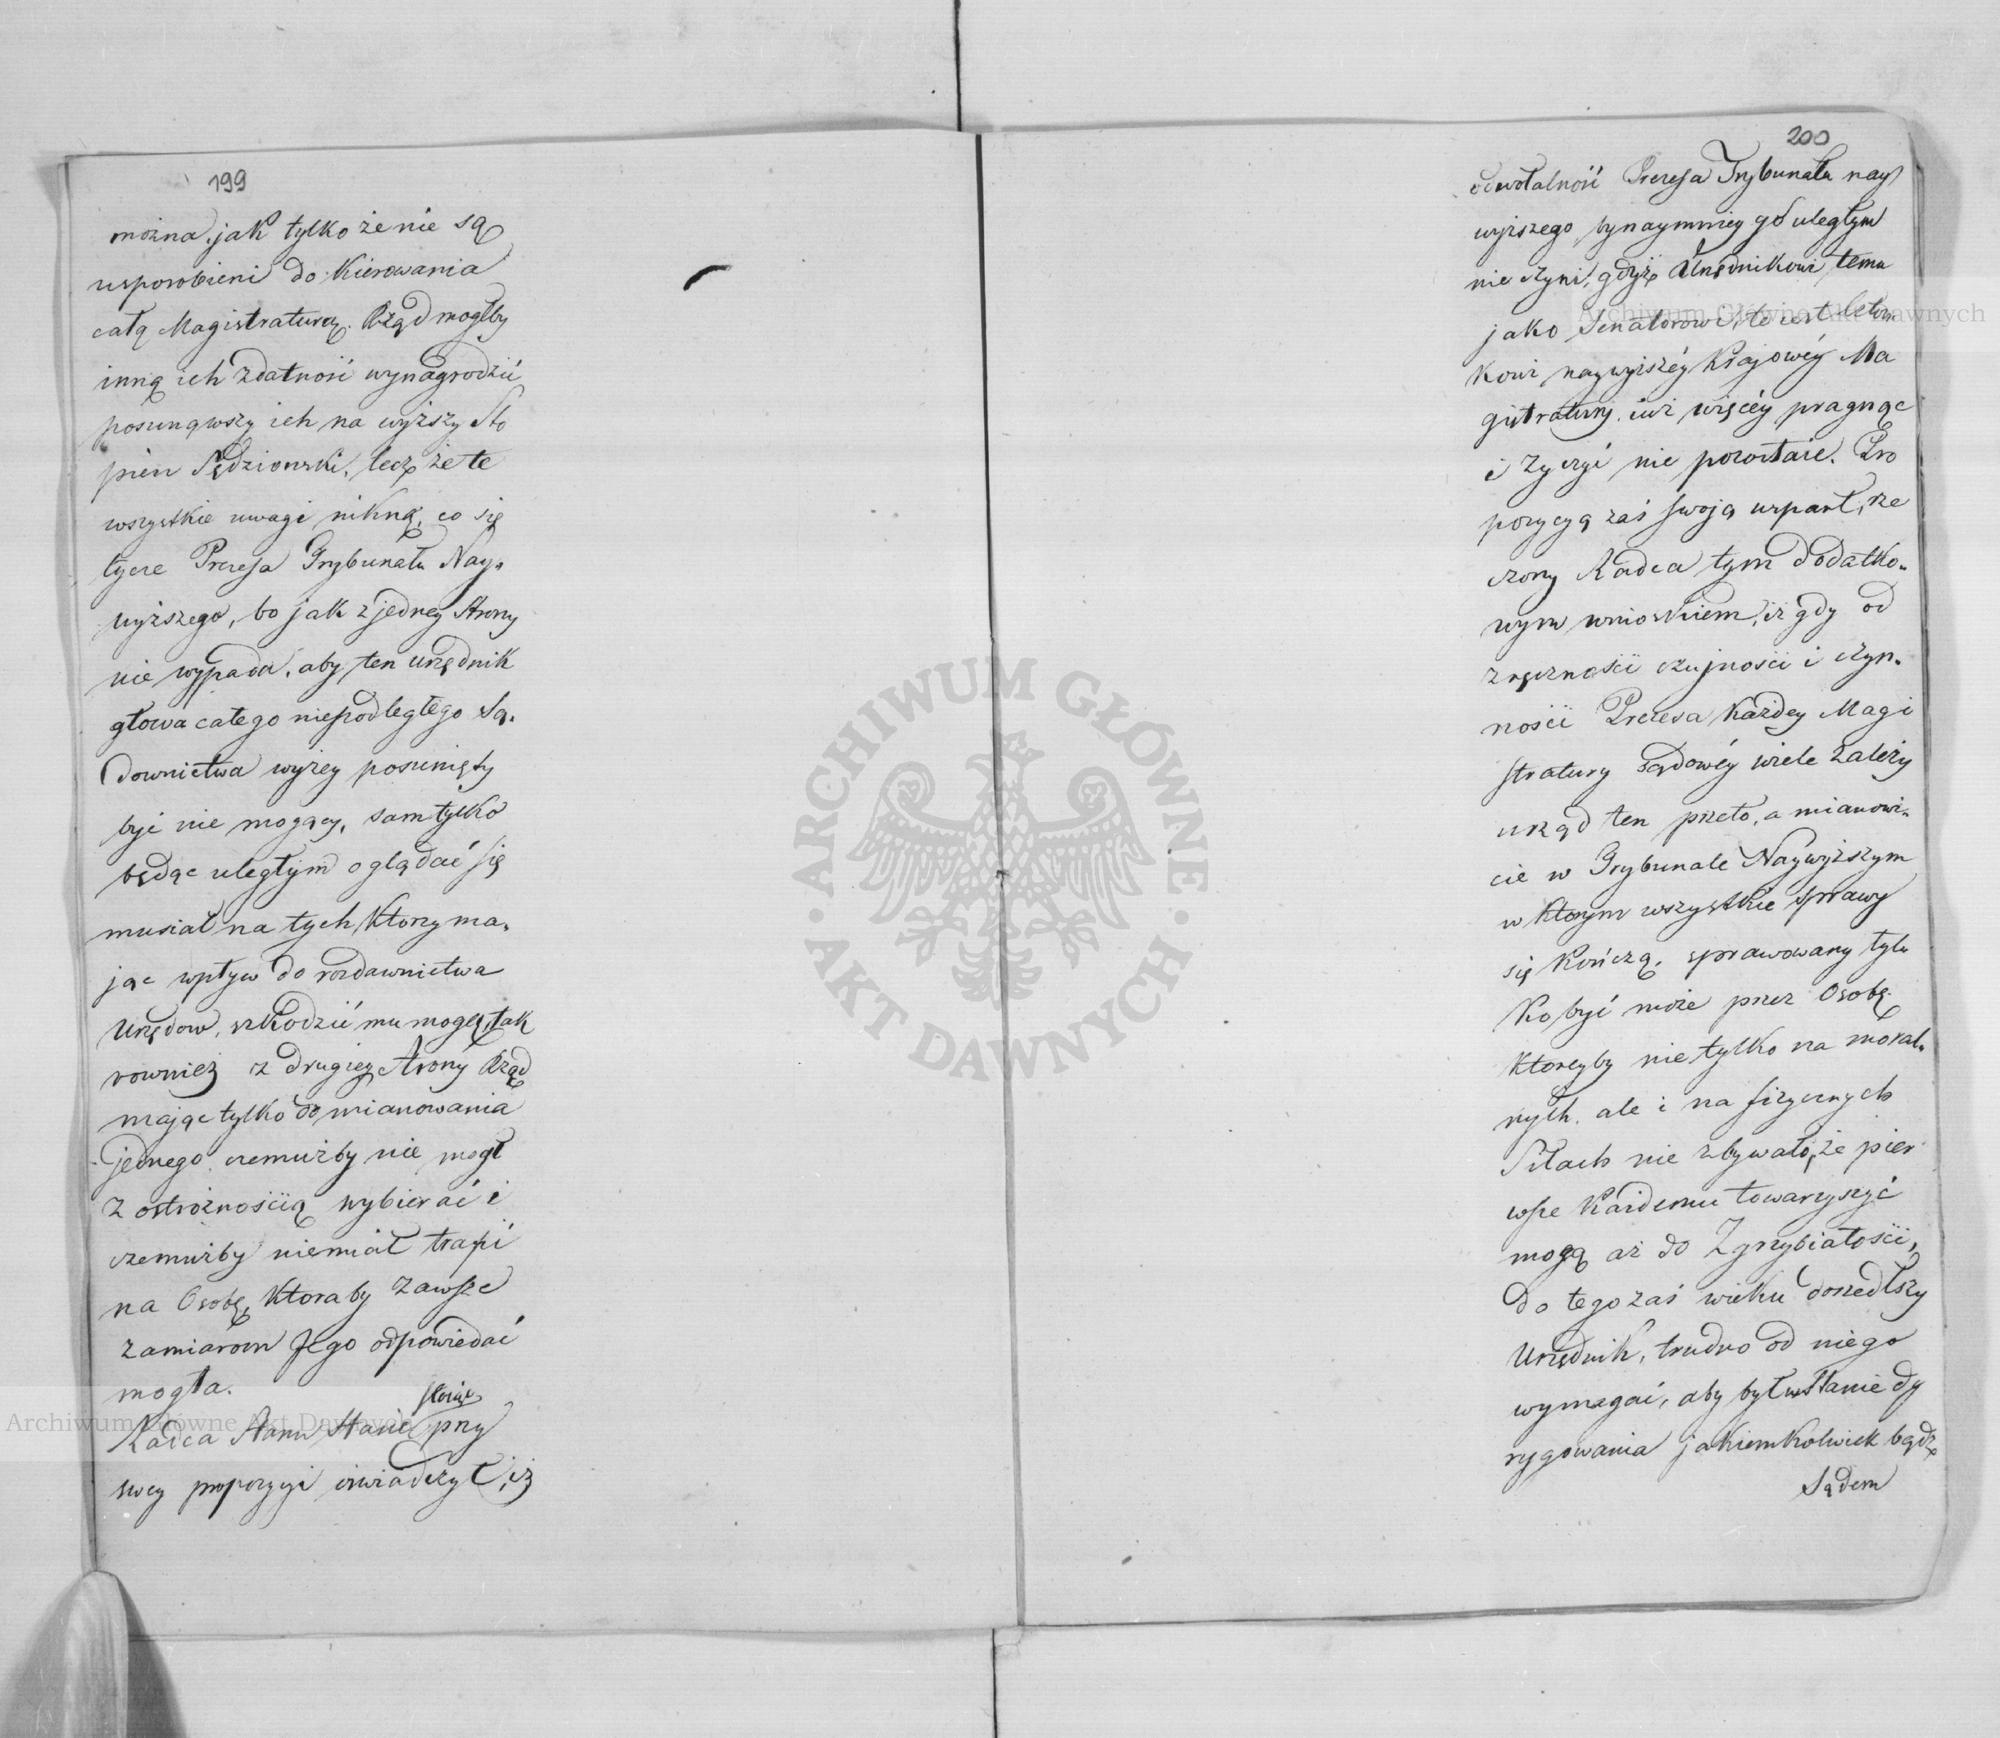 199
można, jak tylko że nie są
usposobieni do Kierowania
całą Magistraturą. Rząd mogłby
inną ich zdatność wynagrodzić
posunąwszy ich na wyższy Sto
pień Sędziowski, lecz że te
wszystkie uwagi nikną, co się
tycze Prezesa Trybunału Nay-
wyższego, bo jak z jedney Strony
nie wypada, aby ten urzędnik
głowa całego niepodległego Są-
downictwa wyżey posunięty
być nie mogący, sam tylko
będąc uległym oglądać się
musiał na tych, Ktorzy ma-
jąc wpływ do rozdawnictwa
Urzędow, szkodzić mu mogą, tak
rownież z drugiey Strony Rząd
mając tylko do mianowania
jednego, czemużby nie mogł
z ostrożnością wybierać i
czemużby niemiał trafić
na Osobę, Ktoraby zawsze
zamiarom Jego odpowiedać
mogła.
Radca Stanu Stanie przy
swey propozycyi oświadczył, iż
200
odwołalność Prezesa Trybunału nay
wyższego bynaymniey go uległym
nie czyni, gdyż Urzędnikowi temu
jako Senatorowi, to iest Człon
Kowi naywyższéy Krajowéy Ma
gistratury, iuż więcéy pragnąc
i życzyć nie pozostaie. Pro
pozycyą zaś swoją wsparł, rze
czony Radca tym dodatko-
wym wnioskiem, iż gdy od
zręczności czujności i czyn-
ności Prezesa Każdey Magi
stratury Sądowéy wiele zależy
urząd ten przeto, a mianowi-
cie w Trybunale Naywyższym
w Ktorym wszystkie sprawy
się Kończą, sprawowany tyl
Ko być może przez Osobę
Ktoreyby nie tylko na moral-
nych, ale i na fizycznych
Siłach nie zbywało, że pier
wsze Każdemu towarzyszyć
mogą aż do Zgrzybiałości,
do tego zaś wieku doszedłszy
Urzędnik, trudno od niego
wymagać, aby był w Stanie dy
rygowania jakiemkolwiek bądź
Sądem
Archiwum Główne Akt Dawnych
Archiwum Główne Akt Dawnych
ARCHIWUM GŁÓWNE · AKT DAWNYCH ·